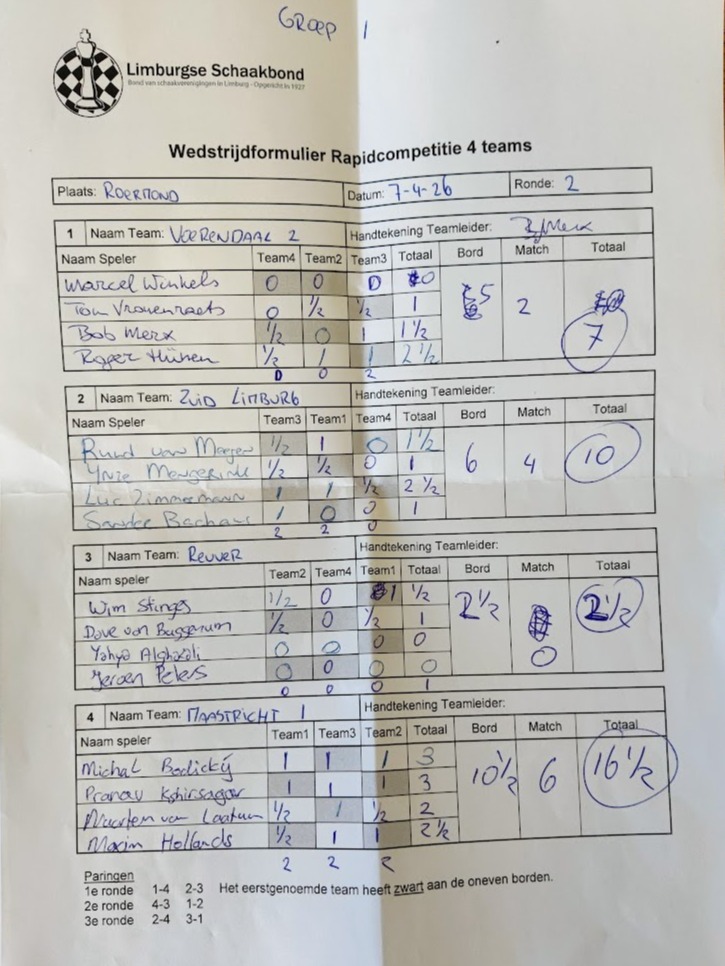 Groep 1
Limburgse Schaakbond
Bond van schaakverenigingen in Limburg - Opgericht in 1927
Wedstrijdformulier Rapidcompetitie 4 teams
Plaats: ROERMOND Datum: 7-4-26 Ronde: 2
1 Naam Team: VOERENDAAL 2 Handtekening Teamleider:
Naam Speler Team4 Team2 Team3 Totaal Bord Match Totaal
Marcel Winkels 0 0 0 0 5 2 7
Tom Vrouenraets 0 1/2 1/2 1
Bob Merx 1/2 0 1 1 1/2
Roger Hünen 1/2 1 1 2 1/2
0 0 2
2 Naam Team: ZUID LIMBURG Handtekening Teamleider:
Naam Speler Team3 Team1 Team4 Totaal Bord Match Totaal
Ruud van Meegen 1/2 1 0 1 1/2 6 4 10
1/2 1/2 0 1
Luc Zimmermann 1 1 1/2 2 1/2
Sander Bachaus 1 0 0 1
2 2 0
3 Naam Team: REUVER Handtekening Teamleider:
Naam speler Team2 Team4 Team1 Totaal Bord Match Totaal
Wim Stinges 1/2 0 1 1/2 2 1/2 0 2 1/2
Dave van Buggenum 1/2 0 1/2 1
Yahya Alghazali 0 0 0 0
Jeroen Peters 0 0 0 0
0 0 0 1
4 Naam Team: MAASTRICHT 1 Handtekening Teamleider:
Naam speler Team1 Team3 Team2 Totaal Bord Match Totaal
Michal Bodický 1 1 1 3 10 1/2 6 16 1/2
Pranav Kshirsagar 1 1 1 3
Maarten van Laatum 1/2 1 1/2 2
Maxim Hollands 1/2 1 1 2 1/2
2 2 2
Paringen
1e ronde 1-4 2-3 Het eerstgenoemde team heeft zwart aan de oneven borden.
2e ronde 4-3 1-2
3e ronde 2-4 3-1